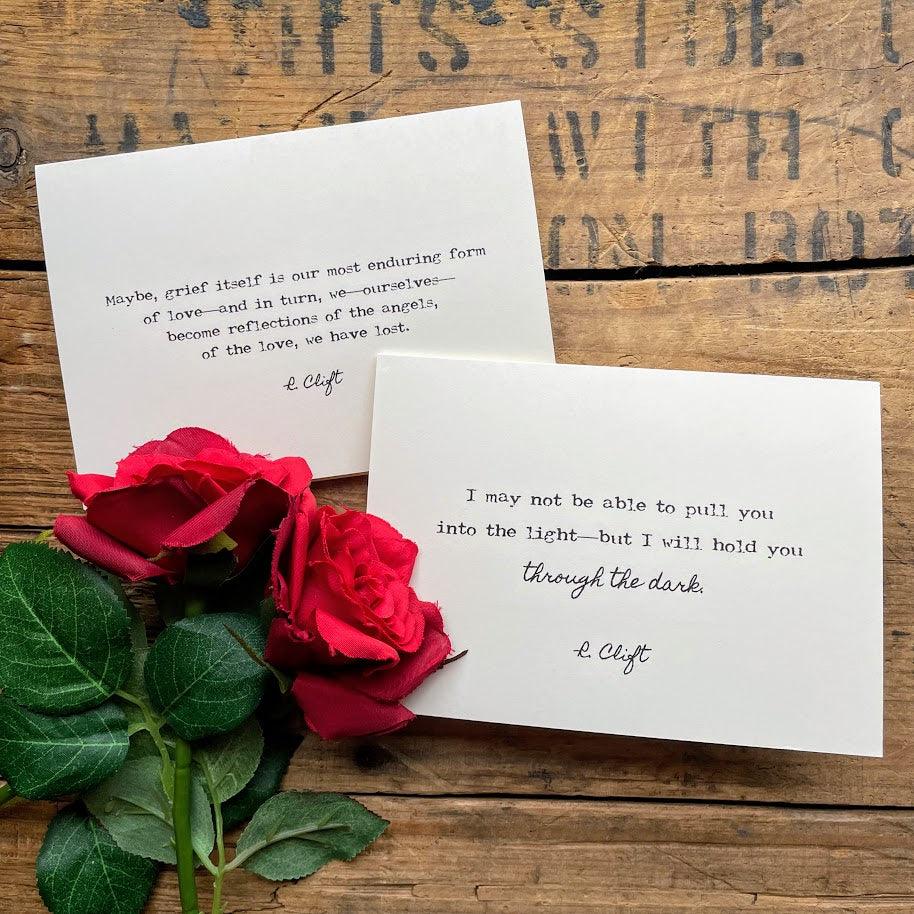 THIS SIDE
WITH
Maybe, grief itself is our most enduring form
of love—and in turn, we—ourselves—
become reflections of the angels,
of the love, we have lost.
R. Clift
I may not be able to pull you
into the light—but I will hold you
through the dark.
R. Clift